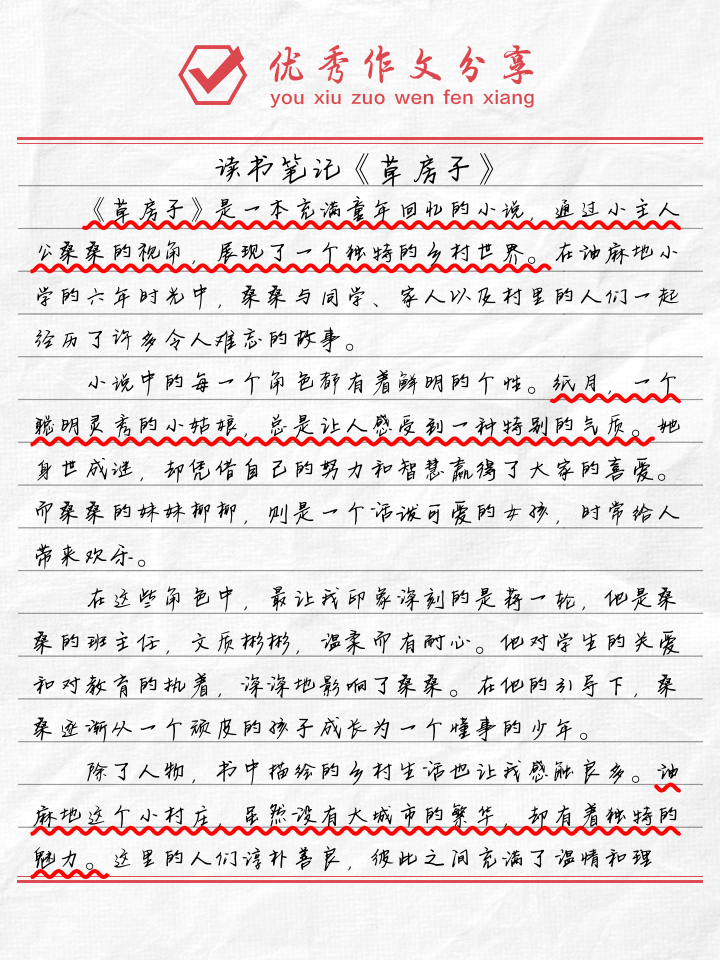 优秀作文分享
you xiu zuo wen fen xiang
读书笔记《草房子》
《草房子》是一本充满童年回忆的小说，通过小主人
公桑桑的视角，展现了一个独特的乡村世界。在油麻地小
学的六年时光中，桑桑与同学、家人以及村里的人们一起
经历了许多令人难忘的故事。
小说中的每一个角色都有着鲜明的个性。纸月，一个
聪明灵秀的小姑娘，总是让人感受到一种特别的气质。她
身世成谜，却凭借自己的努力和智慧赢得了大家的喜爱。
而桑桑的妹妹柳柳，则是一个活泼可爱的女孩，时常给人
带来欢乐。
在这些角色中，最让我印象深刻的是蒋一轮，他是桑
桑的班主任，文质彬彬，温柔而有耐心。他对学生的关爱
和对教育的执着，深深地影响了桑桑。在他的引导下，桑
桑逐渐从一个顽皮的孩子成长为一个懂事的少年。
除了人物，书中描绘的乡村生活也让我感触良多。油
麻地这个小村庄，虽然没有大城市的繁华，却有着独特的
魅力。这里的人们淳朴善良，彼此之间充满了温情和理